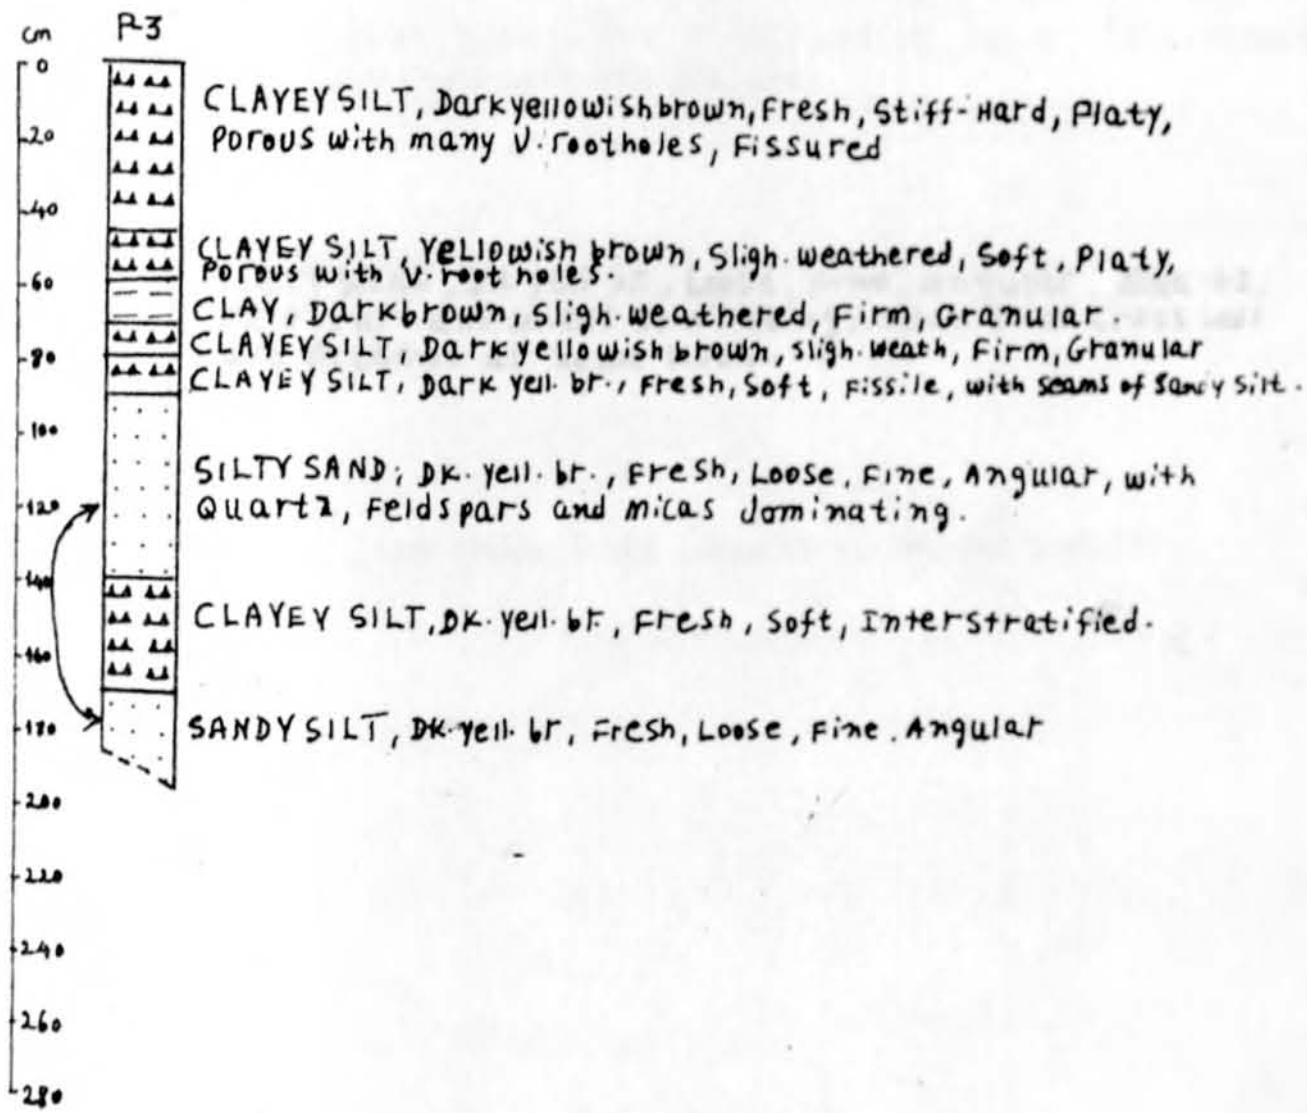 cm P-3
0
CLAYEY SILT, Dark yellowish brown, Fresh, Stiff-Hard, Platy,
20
Porous with many V. rootholes, Fissured
40
CLAYEY SILT, Yellowish brown, Sligh. weathered, Soft, Platy,
Porous with V. root holes.
60
CLAY, Dark brown, Sligh. weathered, Firm, Granular.
CLAYEY SILT, Dark yellowish brown, Sligh. weath, Firm, Granular
80
CLAYEY SILT, Dark yell. br., Fresh, Soft, Fissile, with seams of Sandy Silt.
100
SILTY SAND; DK. yell. br., Fresh, Loose, Fine, Angular, with
120
Quartz, Feldspars and micas dominating.
140
CLAYEY SILT, DK. yell. br., Fresh, Soft, Interstratified.
160
180
SANDY SILT, DK. yell. br, Fresh, Loose, Fine. Angular
200
220
240
260
280